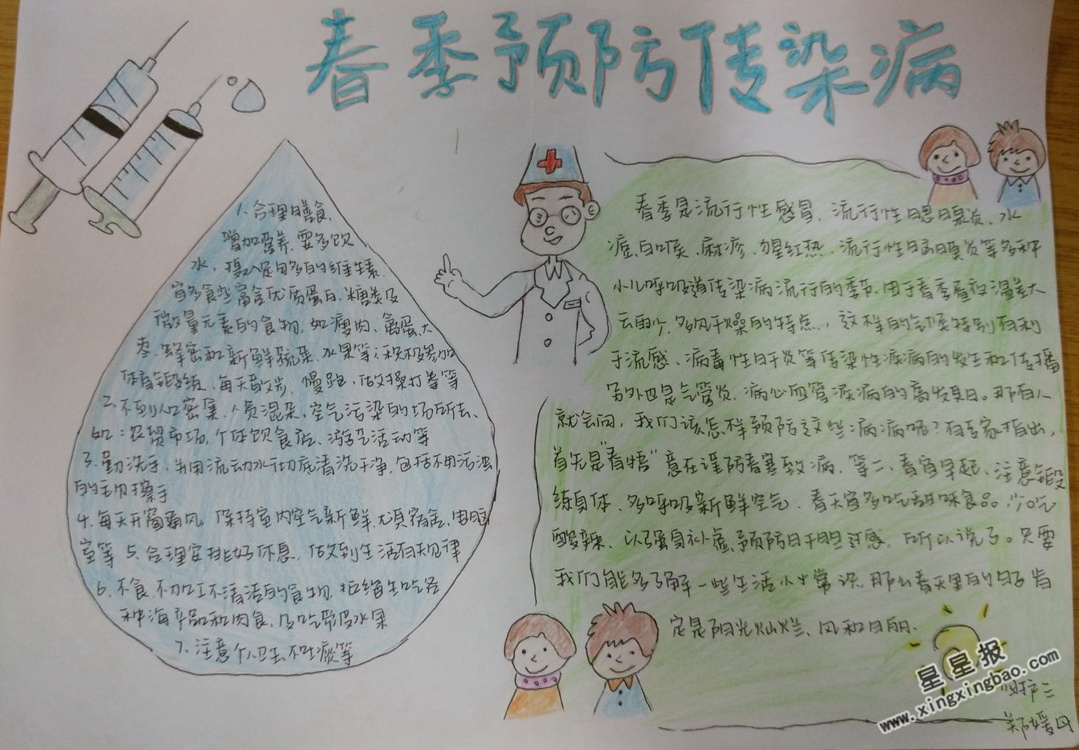 春季预防传染病
1.合理膳食,
增加营养,要多饮
水,摄入足够多的维生素,
宜多食些富含优质蛋白、糖类及
微量元素的食物,如瘦肉、禽蛋、大
枣、蜂蜜和新鲜蔬菜、水果等;积极参加
体育锻练,每天散步、慢跑、做操打拳等
2.不到人口密集、人员混杂、空气污染的场所去、
如:农贸市场、个体饮食店、游艺活动等
3.勤洗手,并用流动水彻底清洗干净,包括不用污浊
的毛巾擦手
4.每天开窗通风,保持室内空气新鲜,尤其宿舍,电脑
室等 5.合理安排好休息,做到生活有规律
6.不食、不加工不清洁的食物,拒绝生吃各
种海产品和肉食,及吃带皮水果
7.注意个人卫生,不吐痰等
春季是流行性感冒、流行性腮腺炎、水
痘、白喉、麻疹、猩红热、流行性脑膜炎等多种
小儿呼吸道传染病流行的季节,由于春季有
云雨少,多风干燥的特点,这样的气候特别有利
于流感、病毒性肝炎等传染性疾病的发生和传播
另外也是气管炎,病心血管疾病的高发期。那有人
就会问,我们该怎样预防这些病病呢?有专家指出,
首先是"春捂"意在谨防春寒致病,第二,春宜早起、注意锻
练身体、多呼吸新鲜空气,春天宜多吃甜味食品,少吃
酸辣,以强身补虚,预防肝胆 感,所以说了。只要
我们能多了解一些生活小常识,那么春天里的
定是阳光灿烂、风和日丽.
护二
郑媛丹
星星报
www.xingxingbao.com